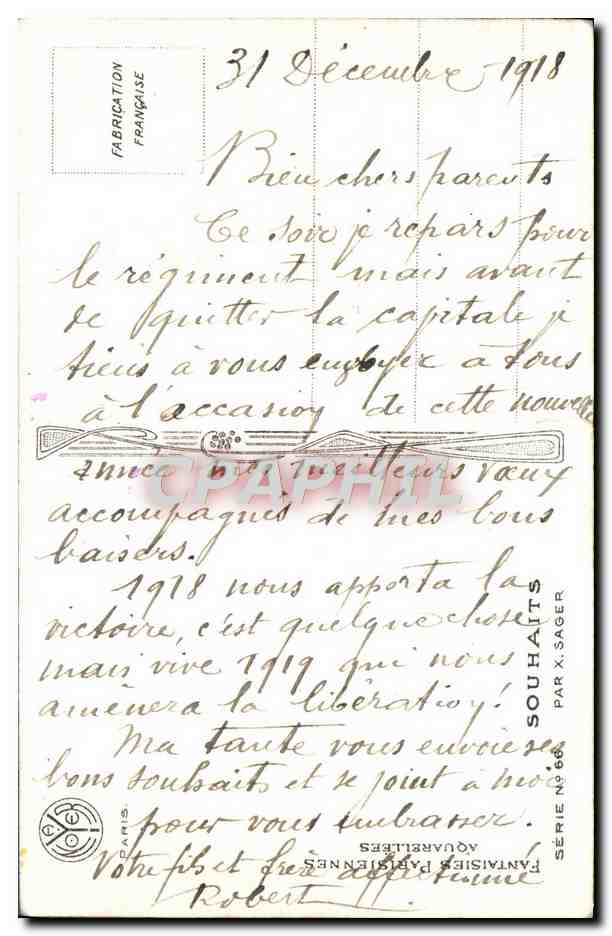 FABRICATION
FRANÇAISE
31 Décembre 1918
Bien chers parents
Ce soir je repars pour
le régiment mais avant
de quitter la capitale je
tiens à vous envoyer à tous
à l'accasion de cette nouvelle
année mes meilleurs vœux
accompagnés de mes bons
baisers.
1918 nous apporta la
victoire, c'est quelque chose
mais vive 1919 qui nous
amènera la libération!
Ma tante vous envoie ses
bons souhaits et se joint à moi
pour vous embrasser.
Votre fils et frère affectionné
Robert
CPAPHIL
SOUHAITS
PAR X. SAGER
SÉRIE No 66
FANTAISIES PARISIENNES
AQUARELLÉES
PARIS